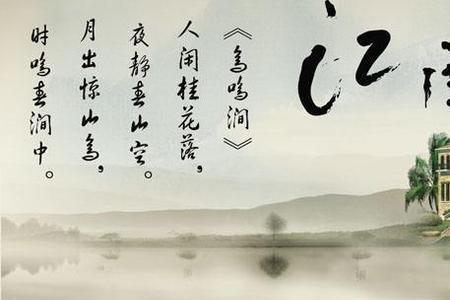 江
《鸟鸣涧》
人闲桂花落，
夜静春山空。
月出惊山鸟，
时鸣春涧中。